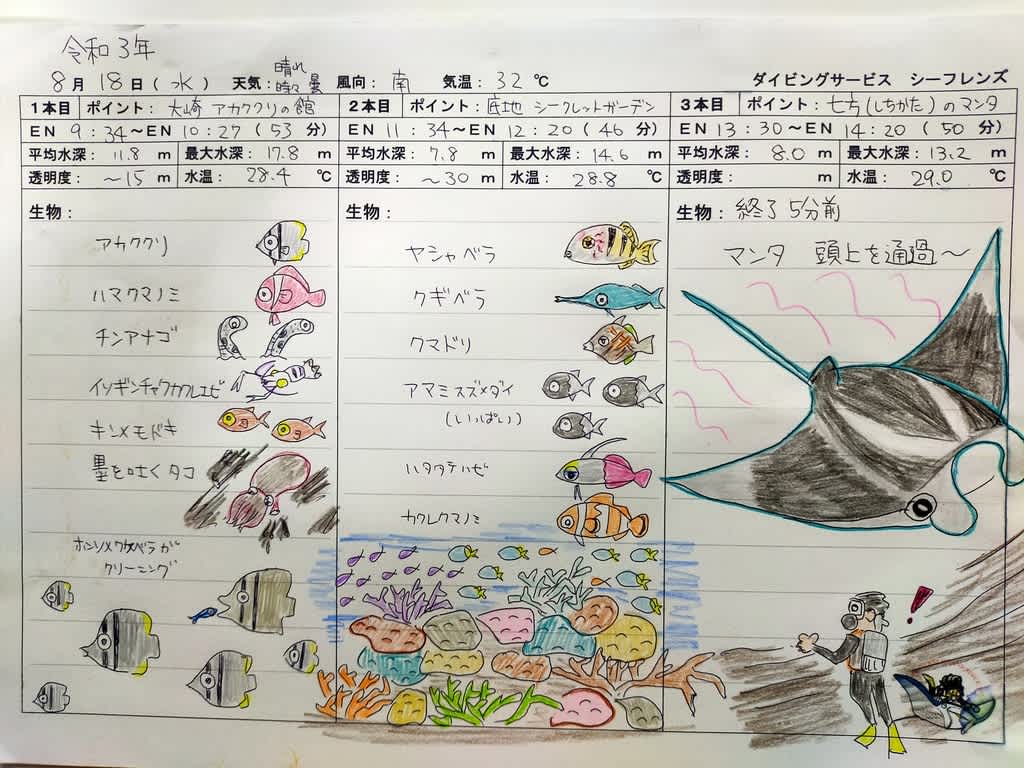 令和3年
8月 18日(水) 天気: 晴れ時々曇 風向: 南 気温: 32℃ ダイビングサービス シーフレンズ
1本目 ポイント: 大崎 アカククリの館
EN 9:34~EN 10:27(53分)
平均水深: 11.8 m 最大水深: 17.8 m
透明度: ~15 m 水温: 28.4 ℃
生物:
アカククリ
ハマクマノミ
チンアナゴ
イソギンチャクカクルエビ
キンメモドキ
墨を吐くタコ
ホンソメワケベラが
クリーニング
2本目 ポイント: 底地 シークレットガーデン
EN 11:34~EN 12:20(46分)
平均水深: 7.8 m 最大水深: 14.6 m
透明度: ~30 m 水温: 28.8 ℃
生物:
ヤシャベラ
クギベラ
クマドリ
アマミスズメダイ
(いっぱい)
ハタタテハゼ
カクレクマノミ
3本目 ポイント: 七方(しちかた)のマンタ
EN 13:30~EN 14:20(50分)
平均水深: 8.0 m 最大水深: 13.2 m
透明度: m 水温: 29.0 ℃
生物: 終了5分前
マンタ 頭上を通過~
!